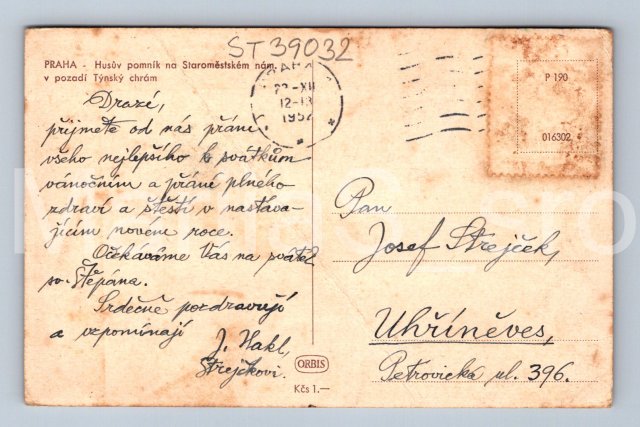 ST 39032
PRAHA - Husův pomník na Staroměstském nám.
v pozadí Týnský chrám
PRAHA
-XII
12-13
1957
P 190
016302
Drazí,
přijměte od nás přání
všeho nejlepšího k svátkům
vánočním a přání plného
zdraví a štěstí v nastáva-
jícím novém roce.
Očekáváme Vás na
sv. Štěpána.
Srdečně pozdravují
a vzpomínají
J. Hakl,
Strejčkovi.
Pan
Josef Strejček,
Uhříněves,
Petrovická ul. 396.
ORBIS
Kčs 1.—